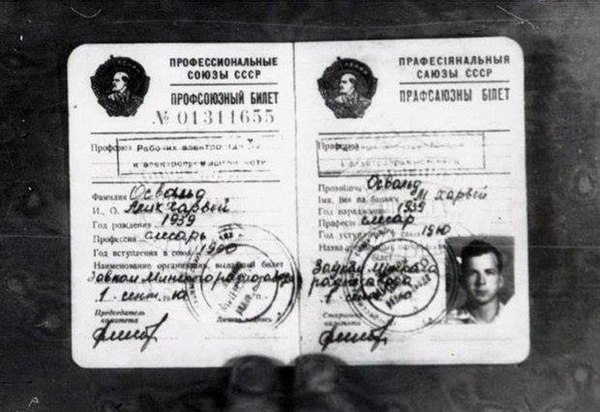 ПРОФЕССИОНАЛЬНЫЕ
СОЮЗЫ СССР
ПРОФСОЮЗНЫЙ БИЛЕТ
№ 01311655
Профсоюз Рабочих электростанций
и электропромышленности
Фамилия Освальд
И., О. Алик Харвей
Год рождения 1939
Профессия слесарь
Год вступления в союз 1960
Наименование организац., выдавшей билет
Завком Минского радиозавода
1 сент. 60
Председатель
комитета
Личная подпись
ПРАФЕСІЯНАЛЬНЫЯ
САЮЗЫ СССР
ПРАФСАЮЗНЫ БІЛЕТ
Прафсаюз
Прозвішча Освальд
Імя, імя па бацьку Харвей
Год нараджэння 1939
Прафесія слесар
Год уступлення 1960
Завком Мінскага
радыёзавода
1 60
Старшыня
камітэта